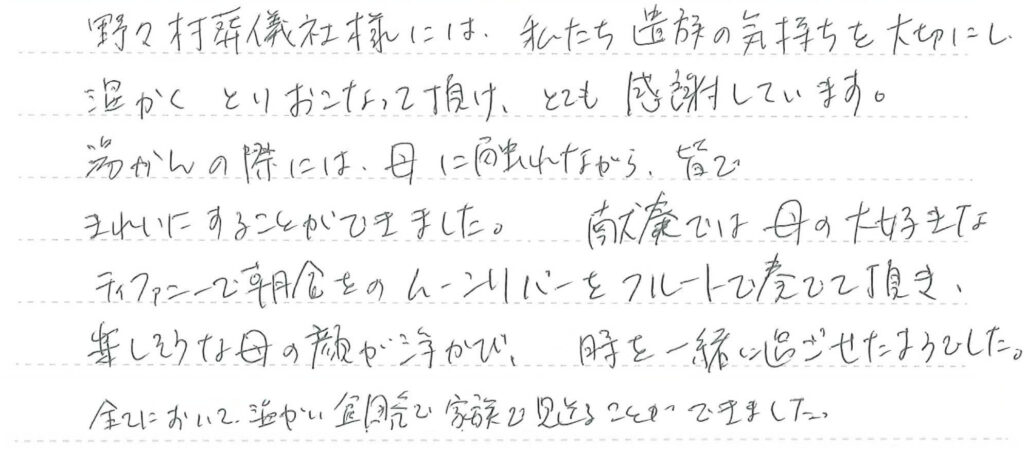 野々村葬儀社様には、私たち遺族の気持ちを大切にし
温かくとりおこなって頂け、とても感謝しています。
湯かんの際には、母に触れながら、皆で
きれいにすることができました。 献奏では母の大好きな
ティファニーで朝食をのムーンリバーをフルートで奏でて頂き、
楽しそうな母の顔が浮かび、 時を一緒に過ごせたようでした。
全てにおいて、温かい 家族で見送ることができました。